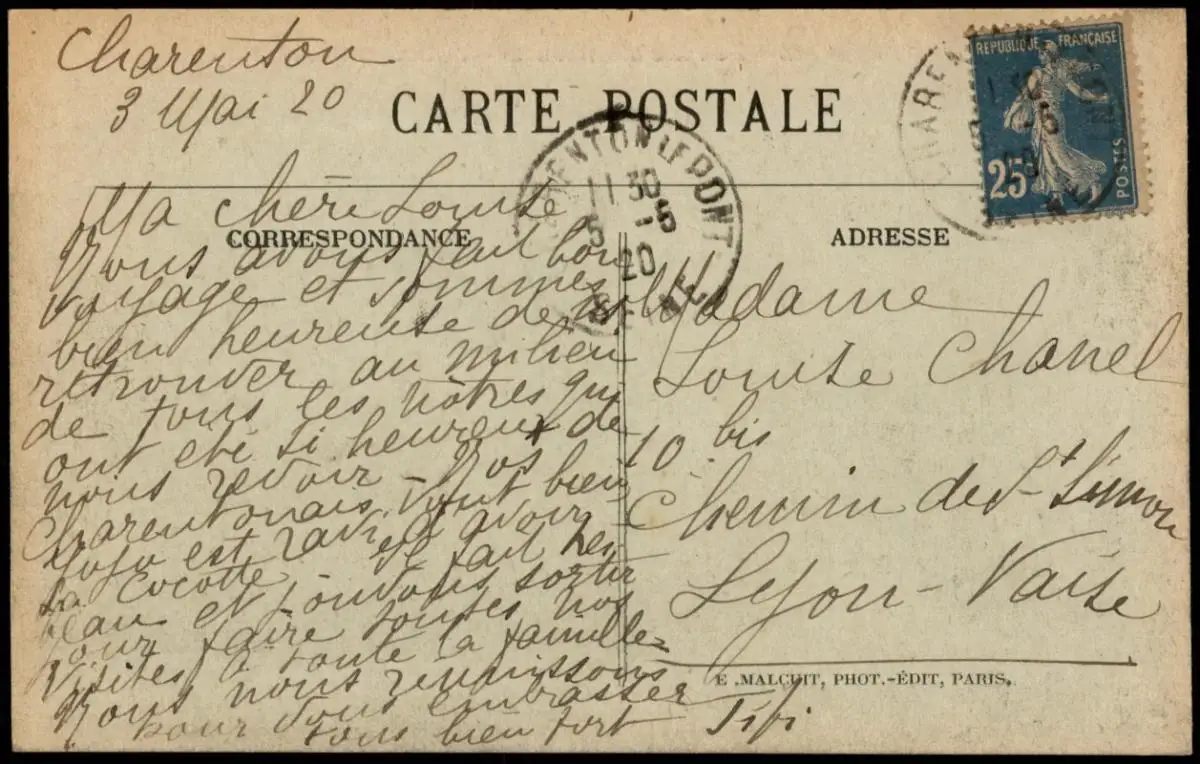 Charenton
3 Mai 20
CARTE POSTALE
RÉPUBLIQUE FRANÇAISE
25c
POSTES
CHARENTON LE PONT
11 30
5 - 5
20
SEINE
CORRESPONDANCE
ADRESSE
Ma chère Louise
Nous avons fait bon
voyage et sommes
bien heureuse de n/s
retrouver au milieu
de tous les nôtres qui
ont été si heureux de
nous revoir - Nos
Charentonais vont bien
est ravi d'avoir
sa cocotte il fait
beau et pouvons sortir
pour faire toutes nos
visites à toute la famille
Nous nous réunissons
pour vous embrasser
tous bien fort Fifi
Madame
Louise Chanel
10 bis
Chemin de St Simon
Lyon-Vaise
E. MALCUIT, PHOT.-ÉDIT, PARIS.